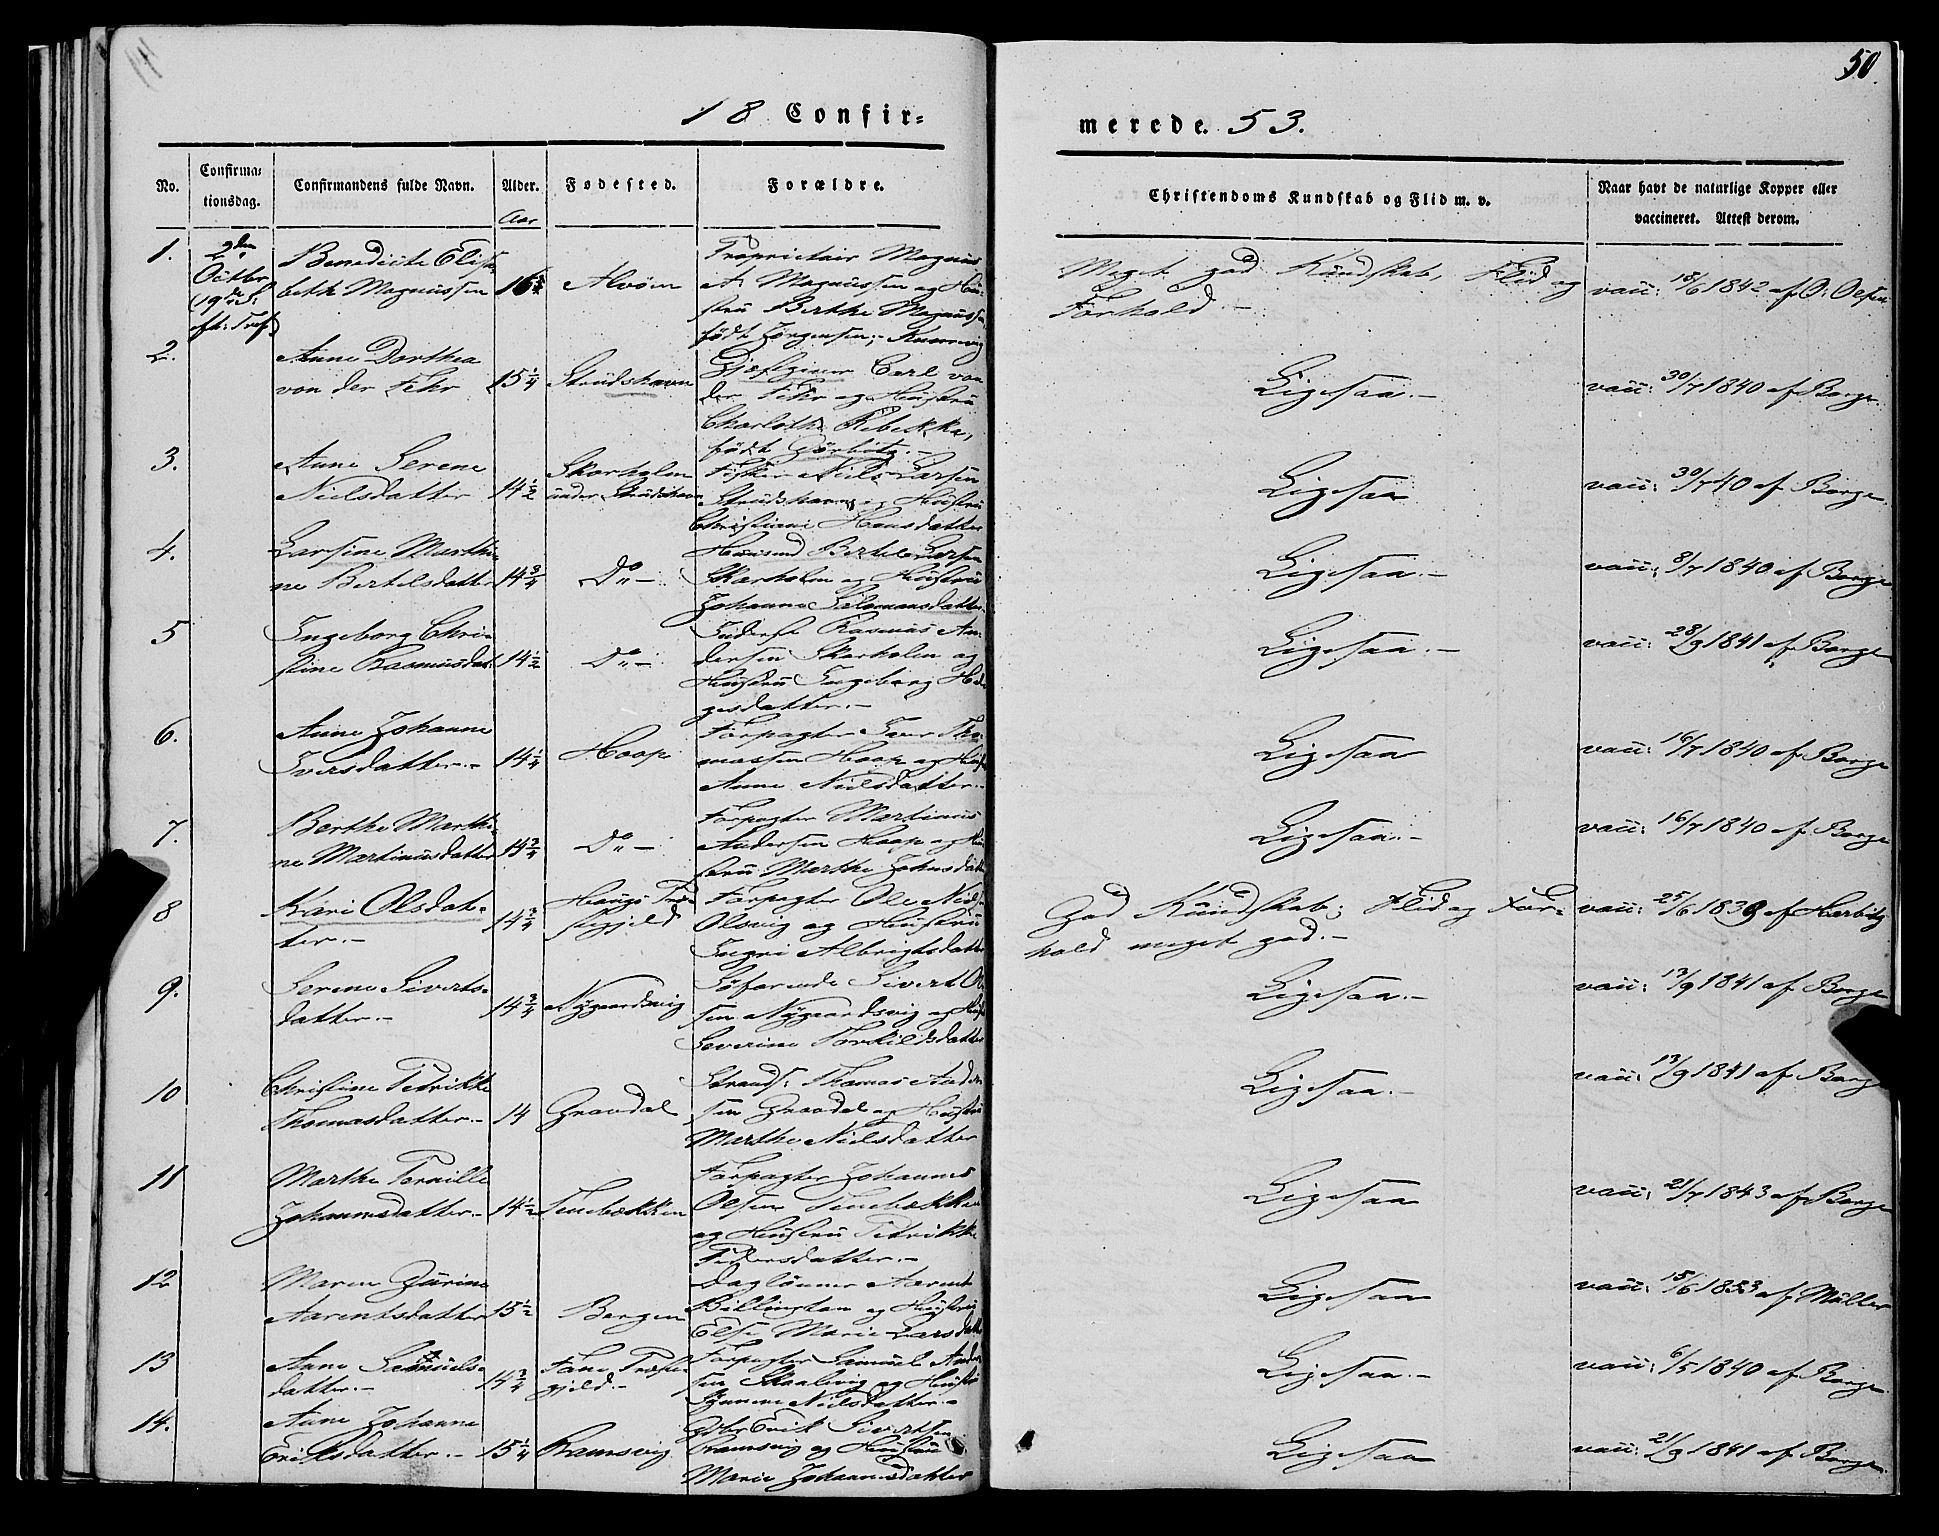 50.
18 Confir=
merede. 53.
No.
Confirma=
tionsdag.
Confirmandens fulde Navn.
Alder.
Aar
Fødested.
Forældre.
Christendoms Kundskab og Flid m. v.
Naar havt de naturlige Kopper eller
vaccineret. Attest derom.
1.
2den
Octbr
(19de S.
eft: Tref)
Benedicte Elisa
beth Magnussen
Alvøen
Proprietair Magnus
A Magnussen og Hu
stru Birthe Magnussen,
født Jørgensen,
Meget god Kundskab, Flid og
Forhold.-
vacc: 18/6 1842 af O: Olsen
2.
Anne Dorthea
von der Fehr
15 1/4
Strudshavn
Gjæstgiver Carl von
der Fehr og Hustru
Charlotte Rebekka,
født
Ligesaa.-
vacc: 30/7 1840 af Borge.
3.
Anne Serene
Nielsdatter
14 1/2
Skarholen
under Strudshavn
Fisker Niels Larsen
Strudshavn og Hustru
Christiane Hansdatter
Ligesaa
vacc: 30/7 40 af Borge
4.
Larsine Marthi-
ne Bertelsdatter
14 3/4
Do -
Huusmd Bertel Larsen
Skarholen og Hustru
Johanne Salomonsdatter
Ligesaa.-
vacc: 8/7 1840 af Borge
5
Ingeborg Chri-
stine Rasmusdat:
14 1/2
Do -
Inderst Rasmus An-
dersen Skarholen og
Hustru Ingeborg Hel-
gesdatter.-
Ligesaa.-
vacc: 28/9 1841 af Borge
6.
Anne Johanne
Iversdatter.-
14 1/4
Hoop
Forpagter Iver Tho-
massen Hoop og Hust
Anne Nielsdatter.-
Ligesaa
vacc: 16/7 1840 af Borge
7.
Berthe Marthi-
ne Martinusdatter
14 3/4
Do -
Forpagter Martinus
Andersen Hoop og Hu
stru Marthe Johnsdatt
Ligesaa.-
vacc: 16/7 1840 af Borge
8
Kari Olsdat-
ter.-
14 3/4
Hougs Præ-
stegjeld
Forpagter Ole Niels
Olsvig og Hustru
Ingri Albrigtsdatter
God Kundskab; Flid og For-
hold meget god.-
vacc: 25/6 1839 af Harbitz
9.
Serene Siverts-
datter.-
14 3/4
Nygaardsvig
Søfarende Sivert Ol
sen Nygaardsvig og Hust
Severine Torkildsdatter
Ligesaa.-
vacc: 13/9 1841 af Borge
10
Christine Petrikke
Thomasdatter.-
14
Gravdal
Strands: Thomas Ander
sen Gravdal og Hustru
Marthe Nielsdatter
Ligesaa.-
vacc: 13/9 1841 af Borge
11
Marthe Pernille
Johannesdatter.-
14 1/2
Tenebækken
Forpagter Johannes
Olsen Tenebækken
og Hustru Petrikke
Pedersdatter.-
Ligesaa
vacc: 21/7 1843 af Borge
12
Maren Gurine
Aarentsdatter
15 1/2
Bergen
Dagslønner Aarent
Billington og Hustru
Else Marie Larsdatt
Ligesaa
vacc: 15/6 1853 af Müller
13
Anne Samuels-
datter.-
14 3/4
Fane Præste
gjeld.-
Forpagter Samuel Ander
sen Skaalevig og Hustru
Synneve Nielsdatter.-
Ligesaa.-
vacc: 6/5 1840 af Borge.
14.
Anne Johanne
Eriksdatter.-
15 1/4
Ramsvig
Gdbr Erik Sivertsen
Ramsvig og Hustru
Marie Johannesdatter
Ligesaa
vacc: 21/9 1841 af Borge.